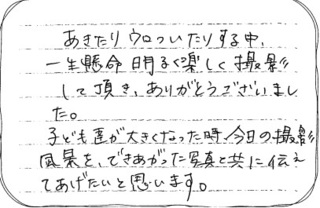 あきたりウロついたりする中、
一生懸命明るく楽しく撮影
して頂き、ありがとうございまし
た。
子ども達が大きくなった時、今日の撮影
風景を、できあがった写真と共に伝え
てあげたいと思います。